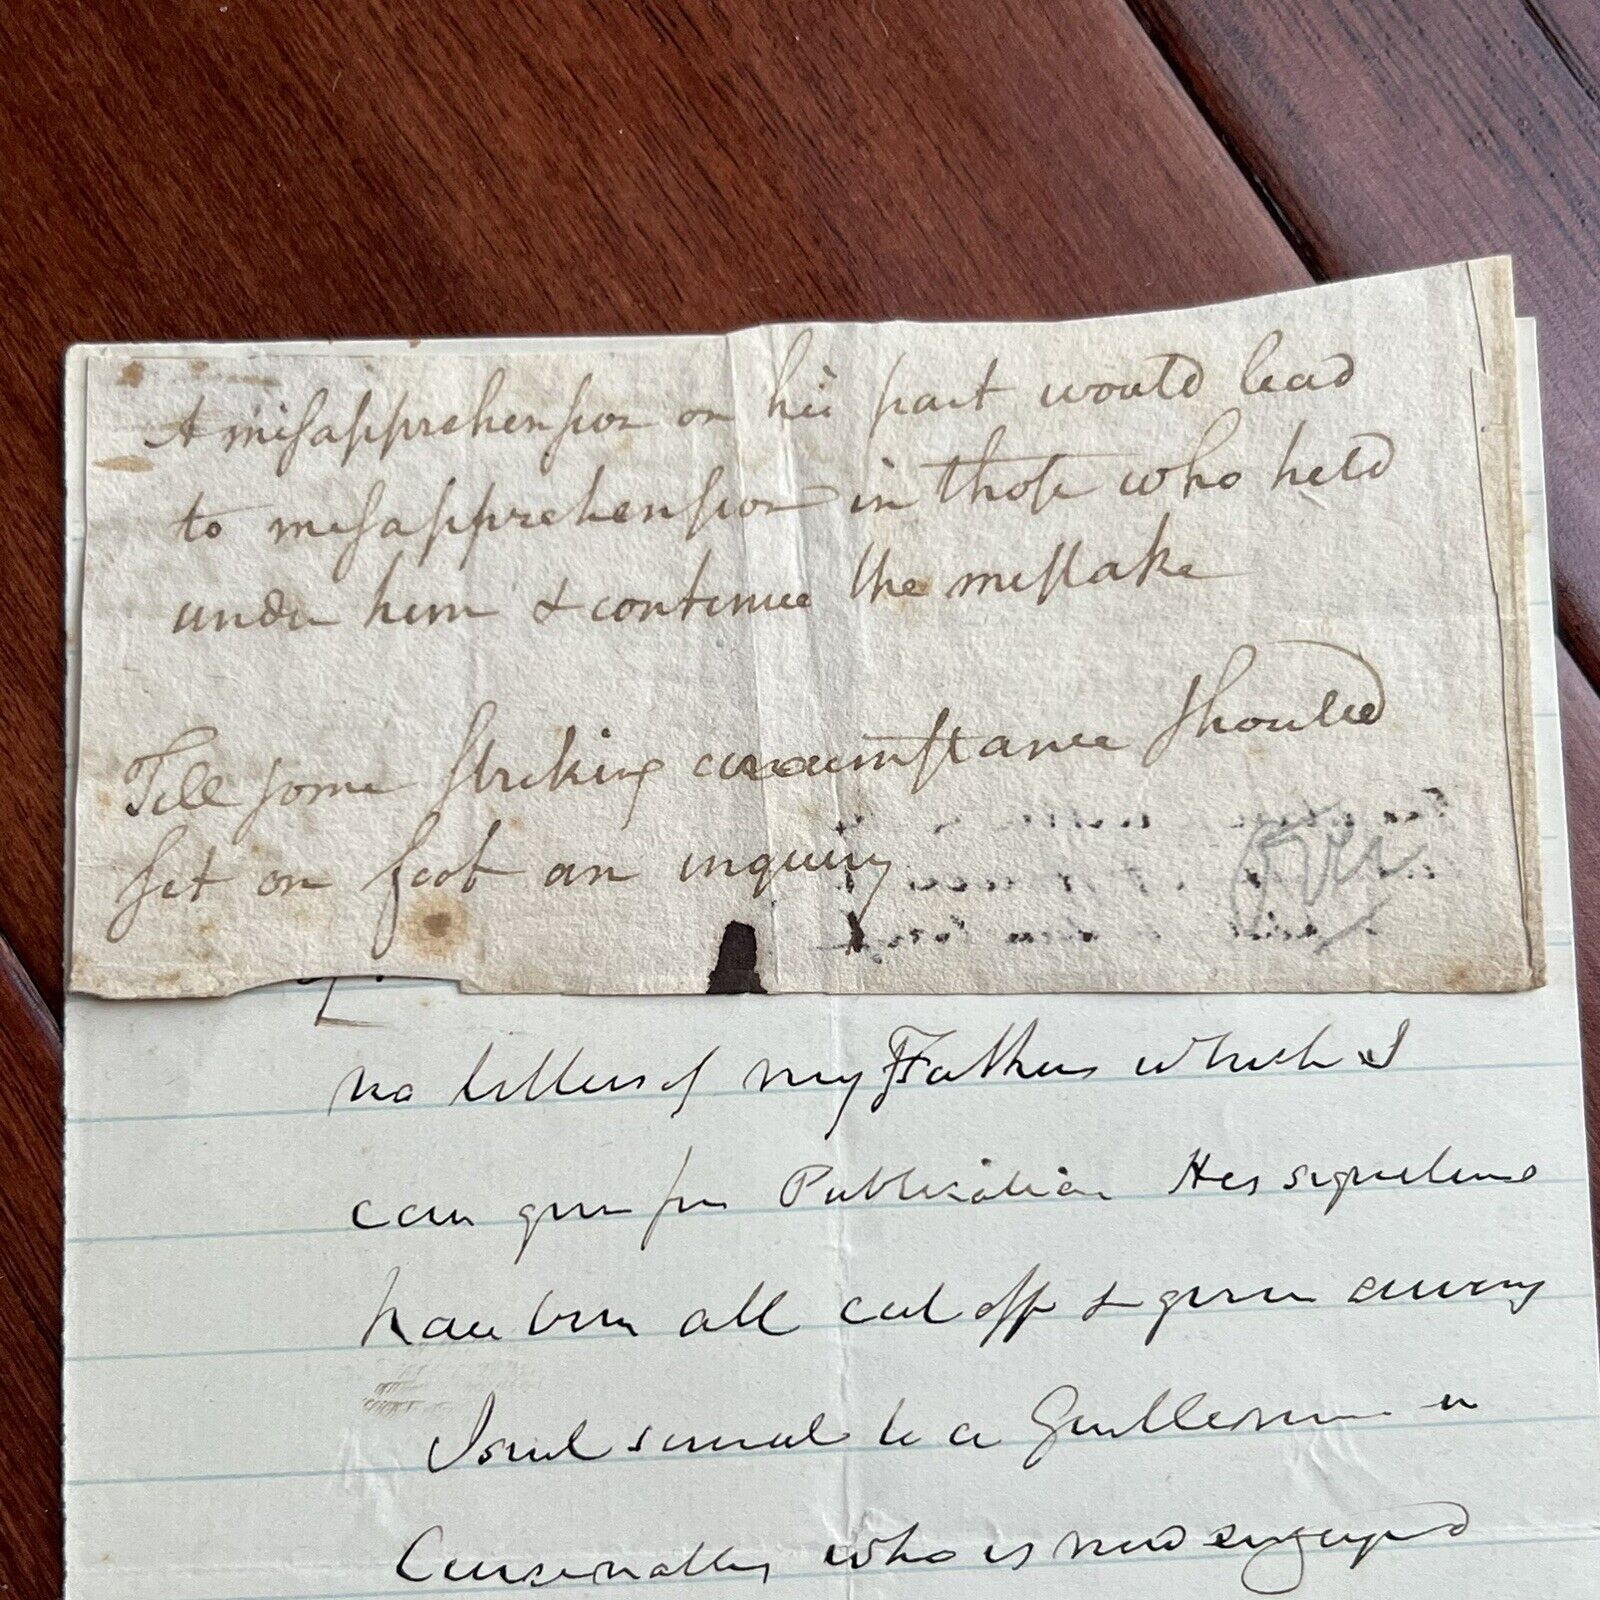 A misapprehension on his part would lead
to misapprehension in those who held
under him & continue the mistake
Till some striking circumstance should
set on foot an inquiry
Over
no letters of my Father which I
can give for Publication His signatures
have been all cut off & given away
I sent several to a Gentleman in
Cincinnatti who is now engaged